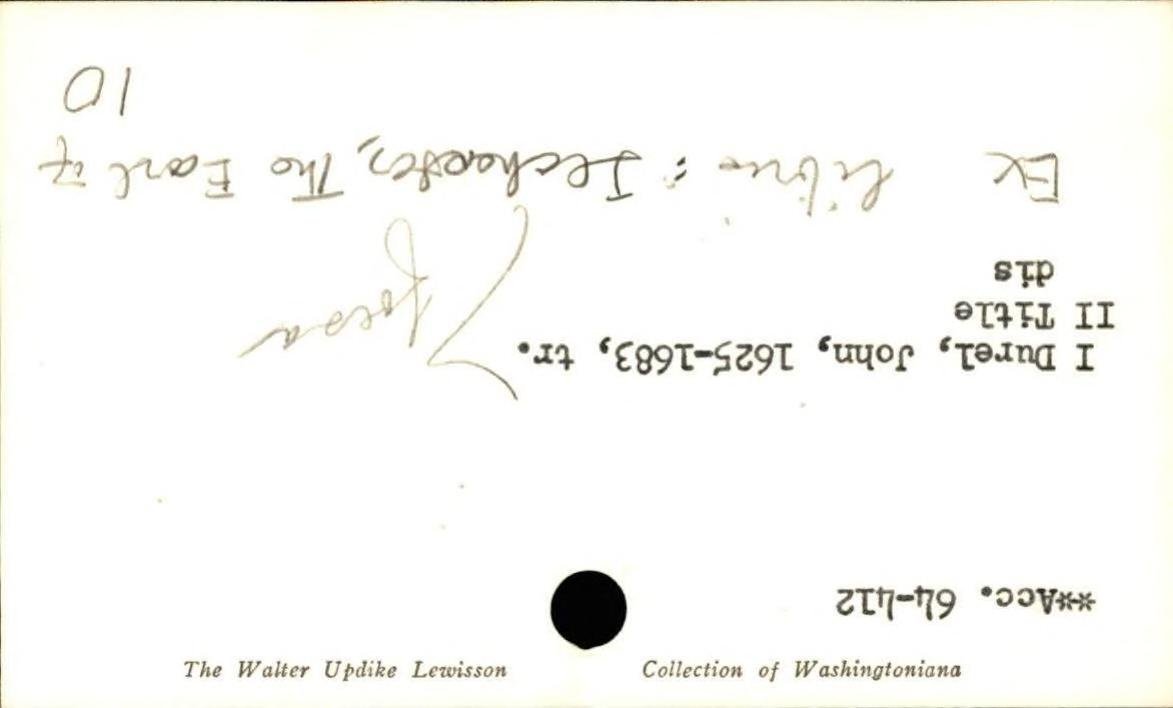 **Acc. 64-412
I Durel, John, 1625-1683, tr.
II Title
dis
Ex libris: Ilchester, The Earl of
10
The Walter Updike Lewisson Collection of Washingtoniana